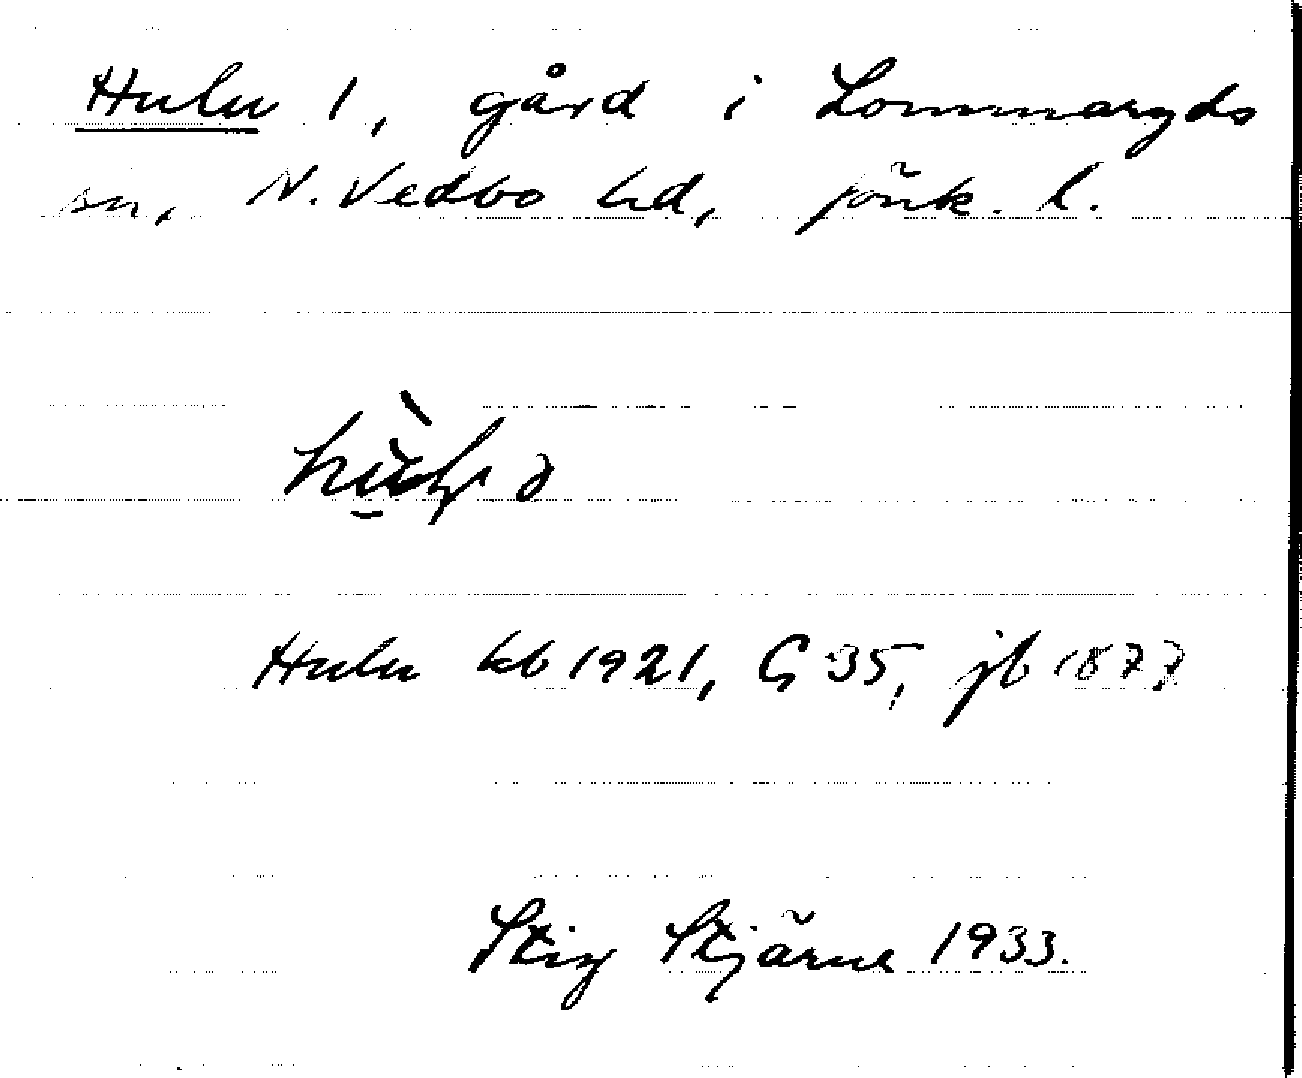 Hulu 1, gård i Lommaryds
sn, N. Vedbo hd, Jönk. l.
Hulu kb 1921, G 35, jb 1877
Stig Stjärne 1933.